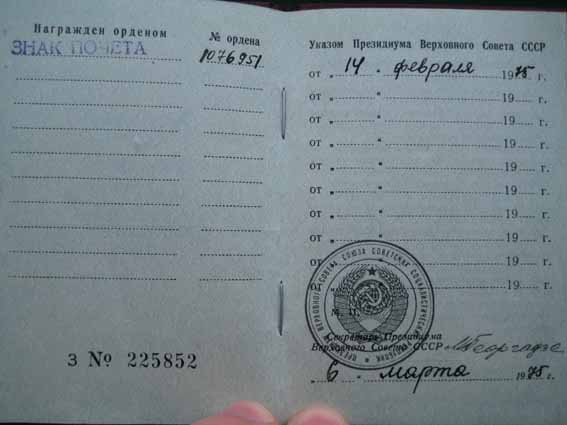 Награжден орденом
№ ордена
ЗНАК ПОЧЕТА
1076951
З № 225852
Указом Президиума Верховного Совета СССР
от „ 14 " февраля 1975 г.
от „ " 19 г.
от „ " 19 г.
от „ " 19 г.
от „ " 19 г.
от „ " 19 г.
от „ " 19 г.
от „ " 19 г.
от „ " 19 г.
от „ 19 г.
М. П.
Секретарь Президиума
Верховного Совета СССР
„ 6 " марта 1975 г.